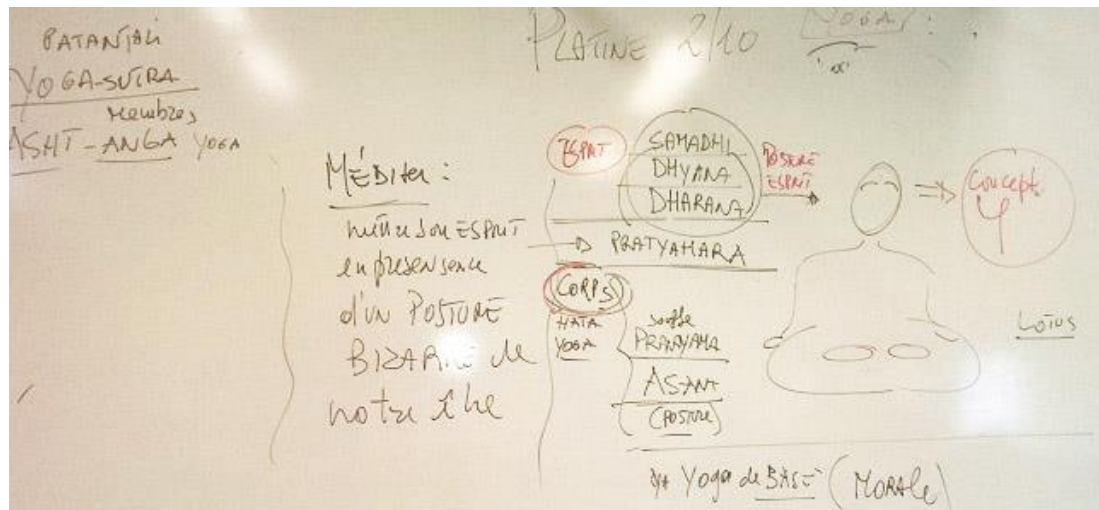 PATANJALI
YOGA-SUTRA
Membres
ASHT-ANGA YOGA
PLATINE 2/10
YOGA
Méditer :
mettre son ESPRIT
en presensence
d'un POSTURE
BIZARRE de
notre être
ESPRIT
SAMADHI
DHYANA
DHARANA
POSTURE
ESPRIT
Concept
PRATYAHARA
CORPS
HATA
YOGA
souffle
PRANAYAMA
ASANA
(POSTURE)
LOTUS
Yoga de BASE (MORALE)